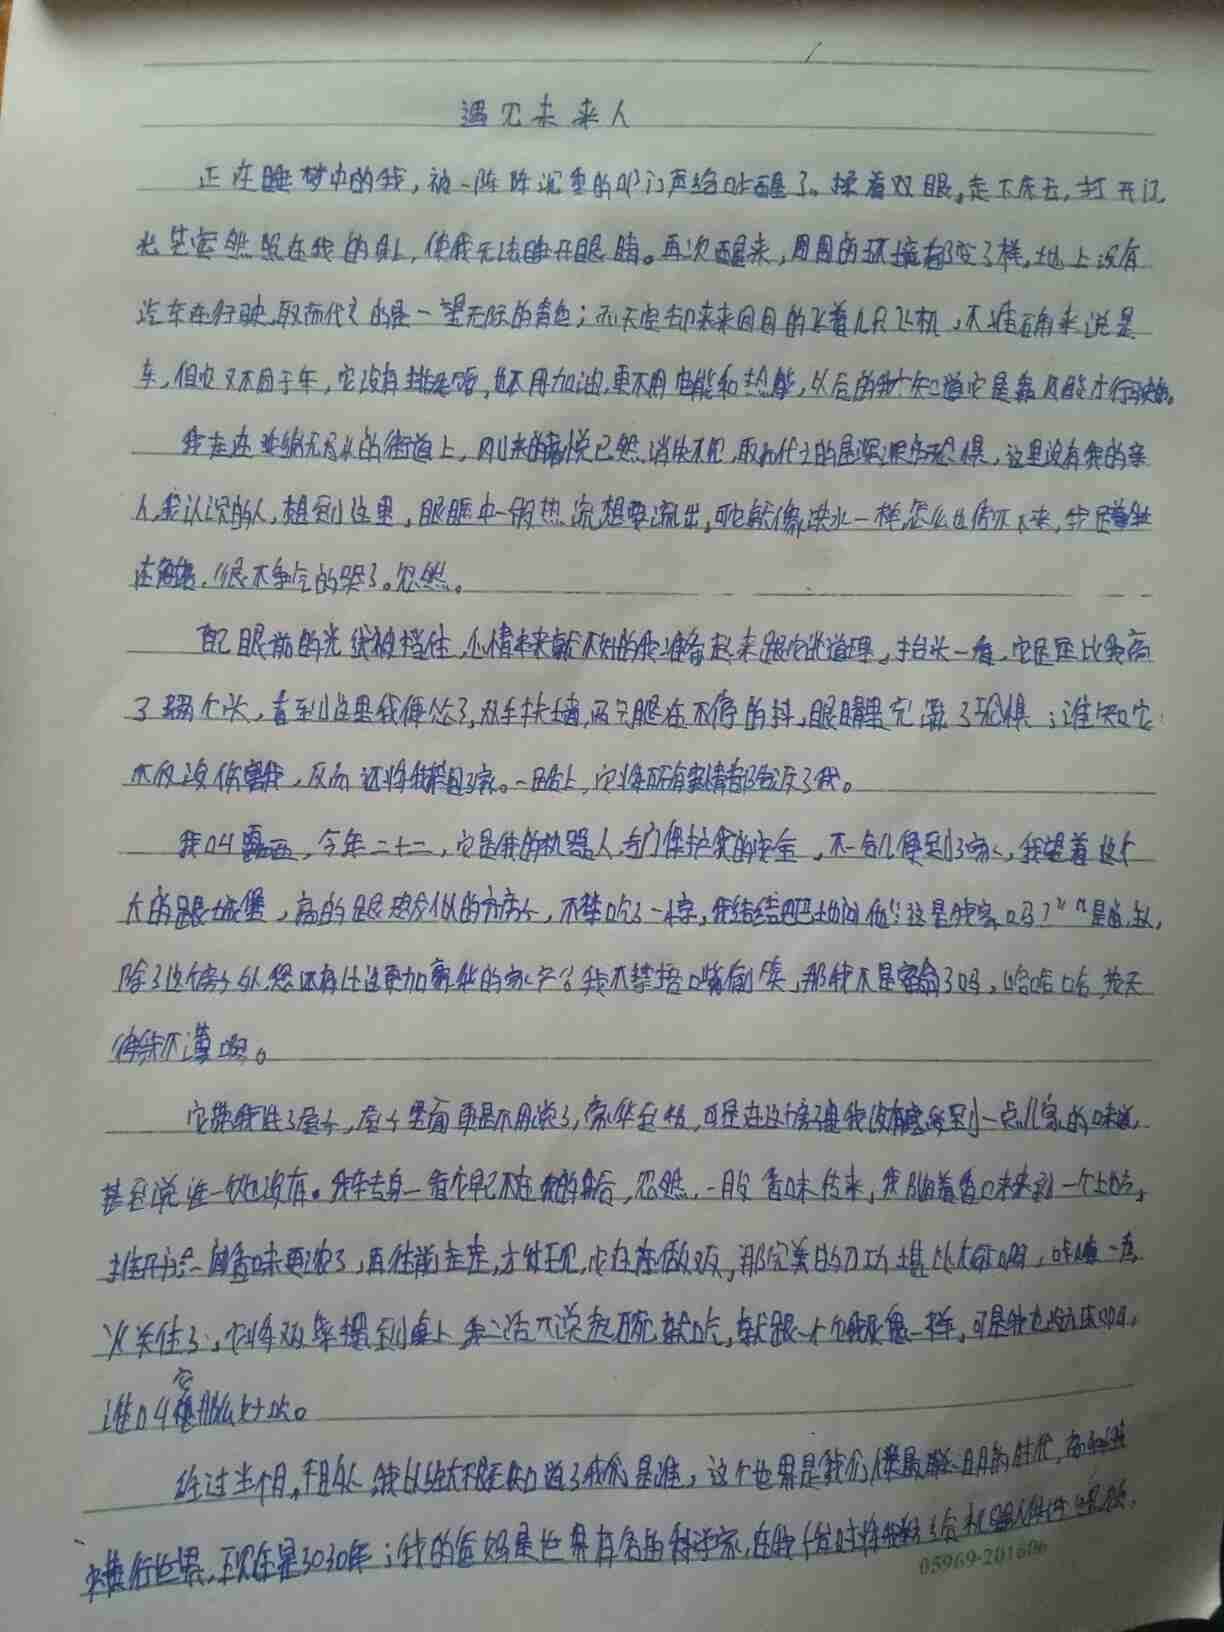 遇见未来人
正在睡梦中的我，被一阵阵沉重的叩门声给吵醒了。揉着双眼，走下床去，打开门，
光芒突然照在我的身上，使我无法睁开眼睛。再次醒来，周围的环境都变了样，地上没有
汽车在行驶，取而代之的是一望无际的青色；而天空却来来回回的飞着几只飞机，不准确来说是
车，但它又不同于车，它没有排气管，也不用加油，更不用电能和热能，以后的我才知道它是靠风能才行驶的。
我走在 的街道上，刚来的喜悦已然消失不见，取而代之的是深深的恐惧，这里没有我的亲
人，我认识的人，想到这里，眼眶中一股热流想要流出，可它就像洪水一样，怎么也停不下来，我只 坐
在角落，很不争气的哭了。忽然。
自己眼前的光线被挡住，心情本来就不好的我准备起来跟它说道理，抬头一看，它足足比我高
了两个头，看到这里我便怂了，双手扶墙，两只腿在不停的抖，眼睛里充满了恐惧；谁知它
不仅没伤害我，反而还将我带回了家。一路上，它将所有事情都告诉了我。
我叫露西，今年二十二，它是我的机器人，专门保护我的安全，不一会儿便到了家，我望着这个
大的跟城堡，高的跟 似的房子，不禁吃了一惊，我结结巴巴地问他“这是我家吗？”“是的，主人，
除了这个房子以外您还有比这更加豪华的家产”我不禁捂嘴偷笑，那我不是富翁了吗，哈哈哈 天
待我不薄啊。
它带我进了屋子，屋子里面更是不用说了，豪华至极，可是在这个房子里我没有感受到一点儿家的味道，
甚至说连一 也没有。我转身一看它早已不在我的身后，忽然，一股香味传来，我闻着香味来到一个地方，
推开 香味更浓了，再往前走走，才发现，它在做饭，那完美的刀功堪比大厨啊，咔嚓一声
火关住了，它将饭菜摆到桌上，我二话不说抱起碗就吃，就跟一个饿死鬼一样，可是我也没办法啊，
谁叫它 那么好吃。
经过半个月，不自 我 知道了我们是谁，这个世界是我们 的时代，
世界，现在是3030年；我的爸妈是世界有名的科学家，在我
05969-201606